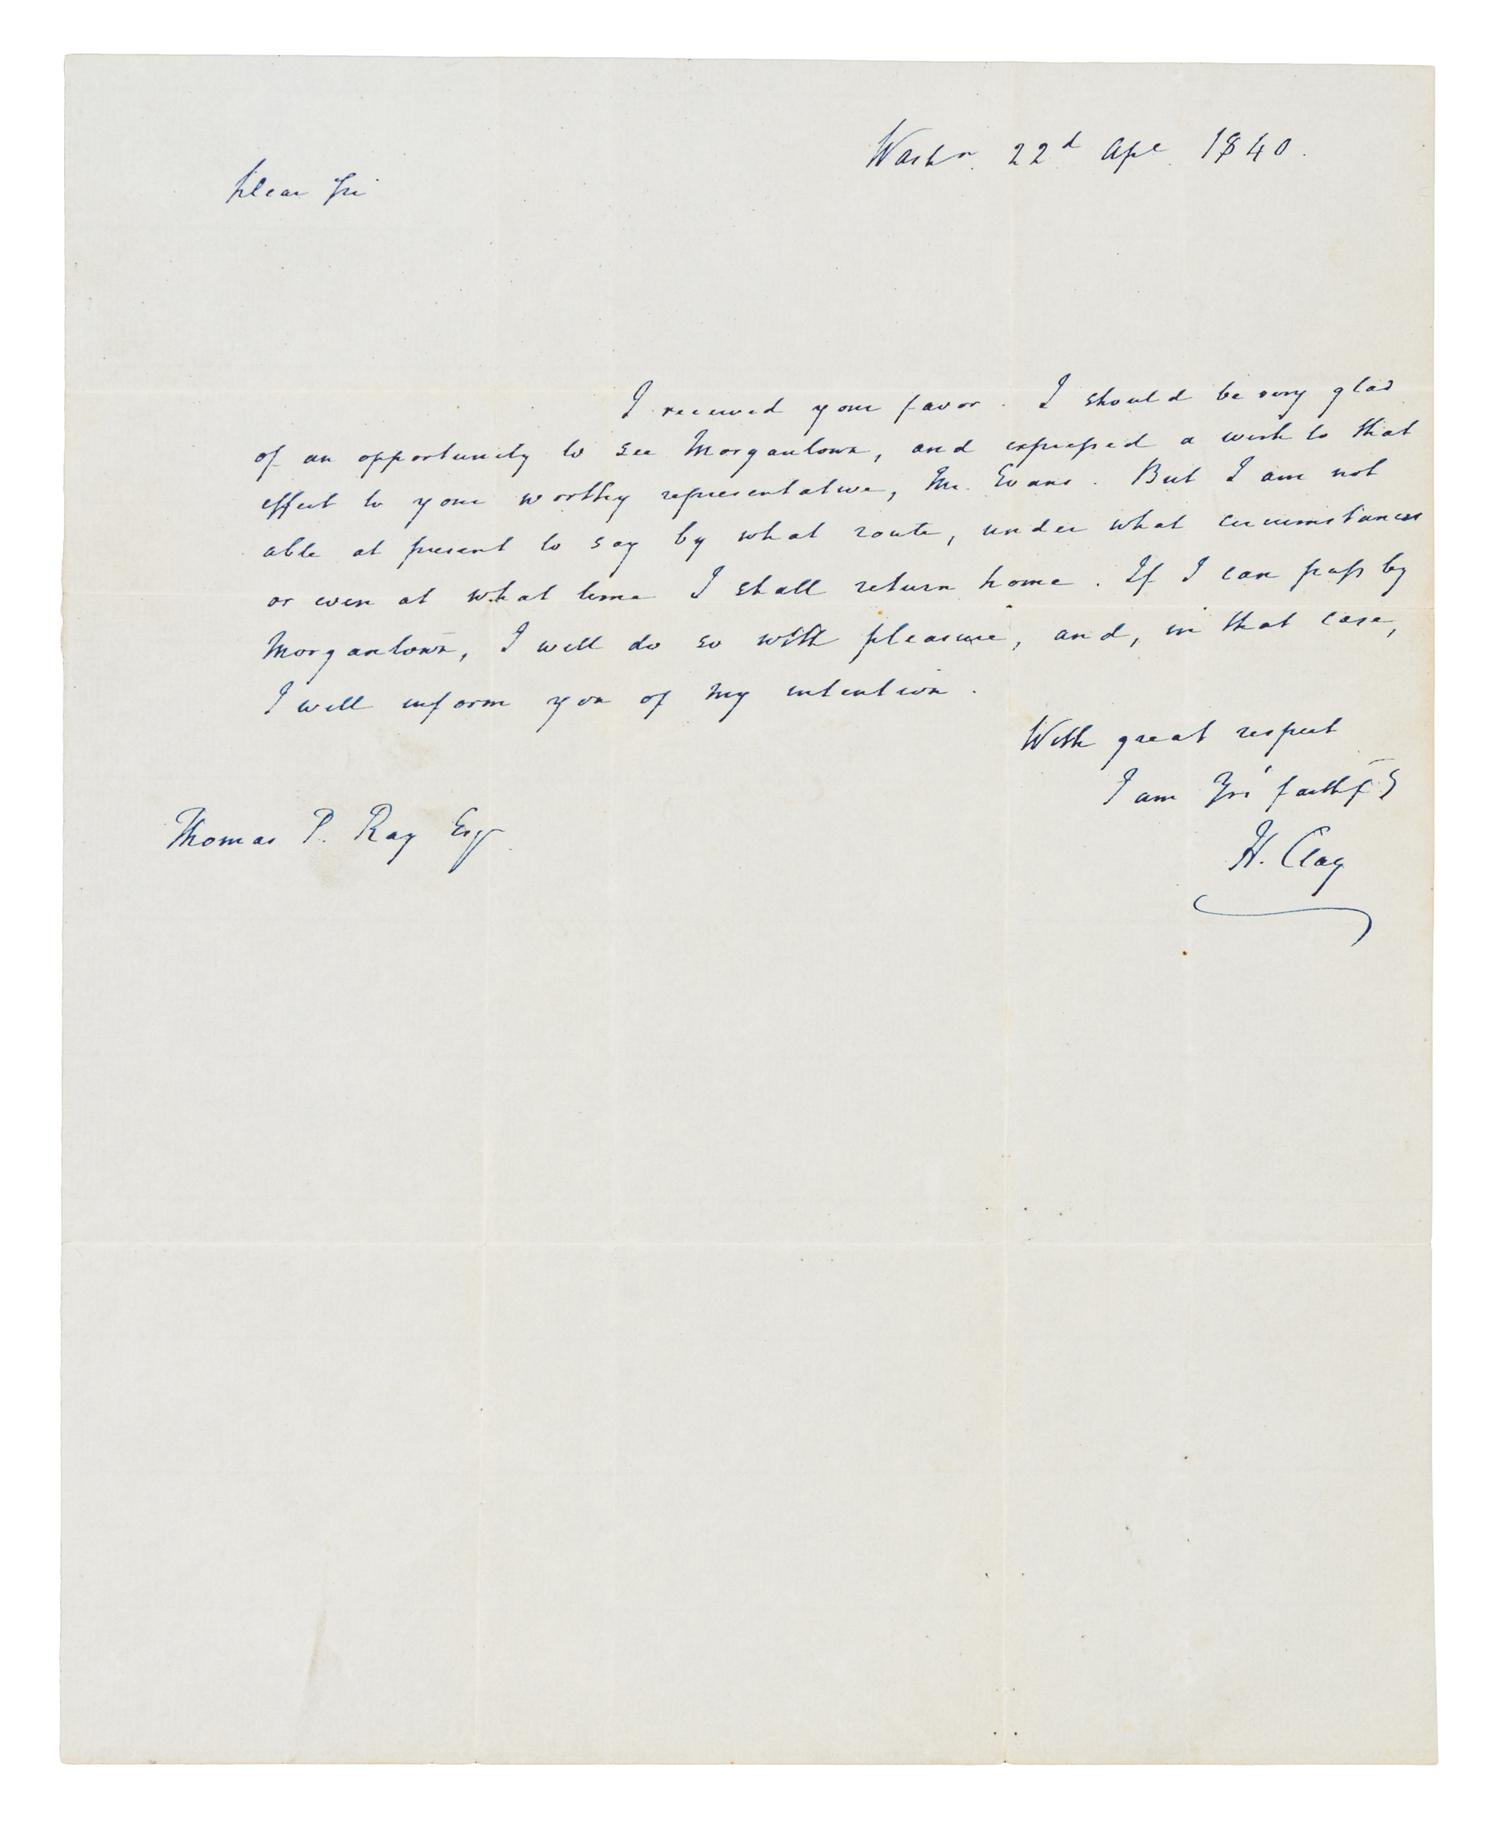 Washn. 22d Apl. 1840.
Dear Sir
I received your favor. I should be very glad
of an opportunity to see Morgantown, and expressed a wish to that
effect to your worthy representative, Mr. Evans. But I am not
able at present to say by what route, under what circumstances
or even at what time I shall return home. If I can pass by
Morgantown, I will do so with pleasure, and, in that case,
I will inform you of my intention.
With great respect
I am Yrs faithfy
H. Clay
Thomas P. Ray Esqr.